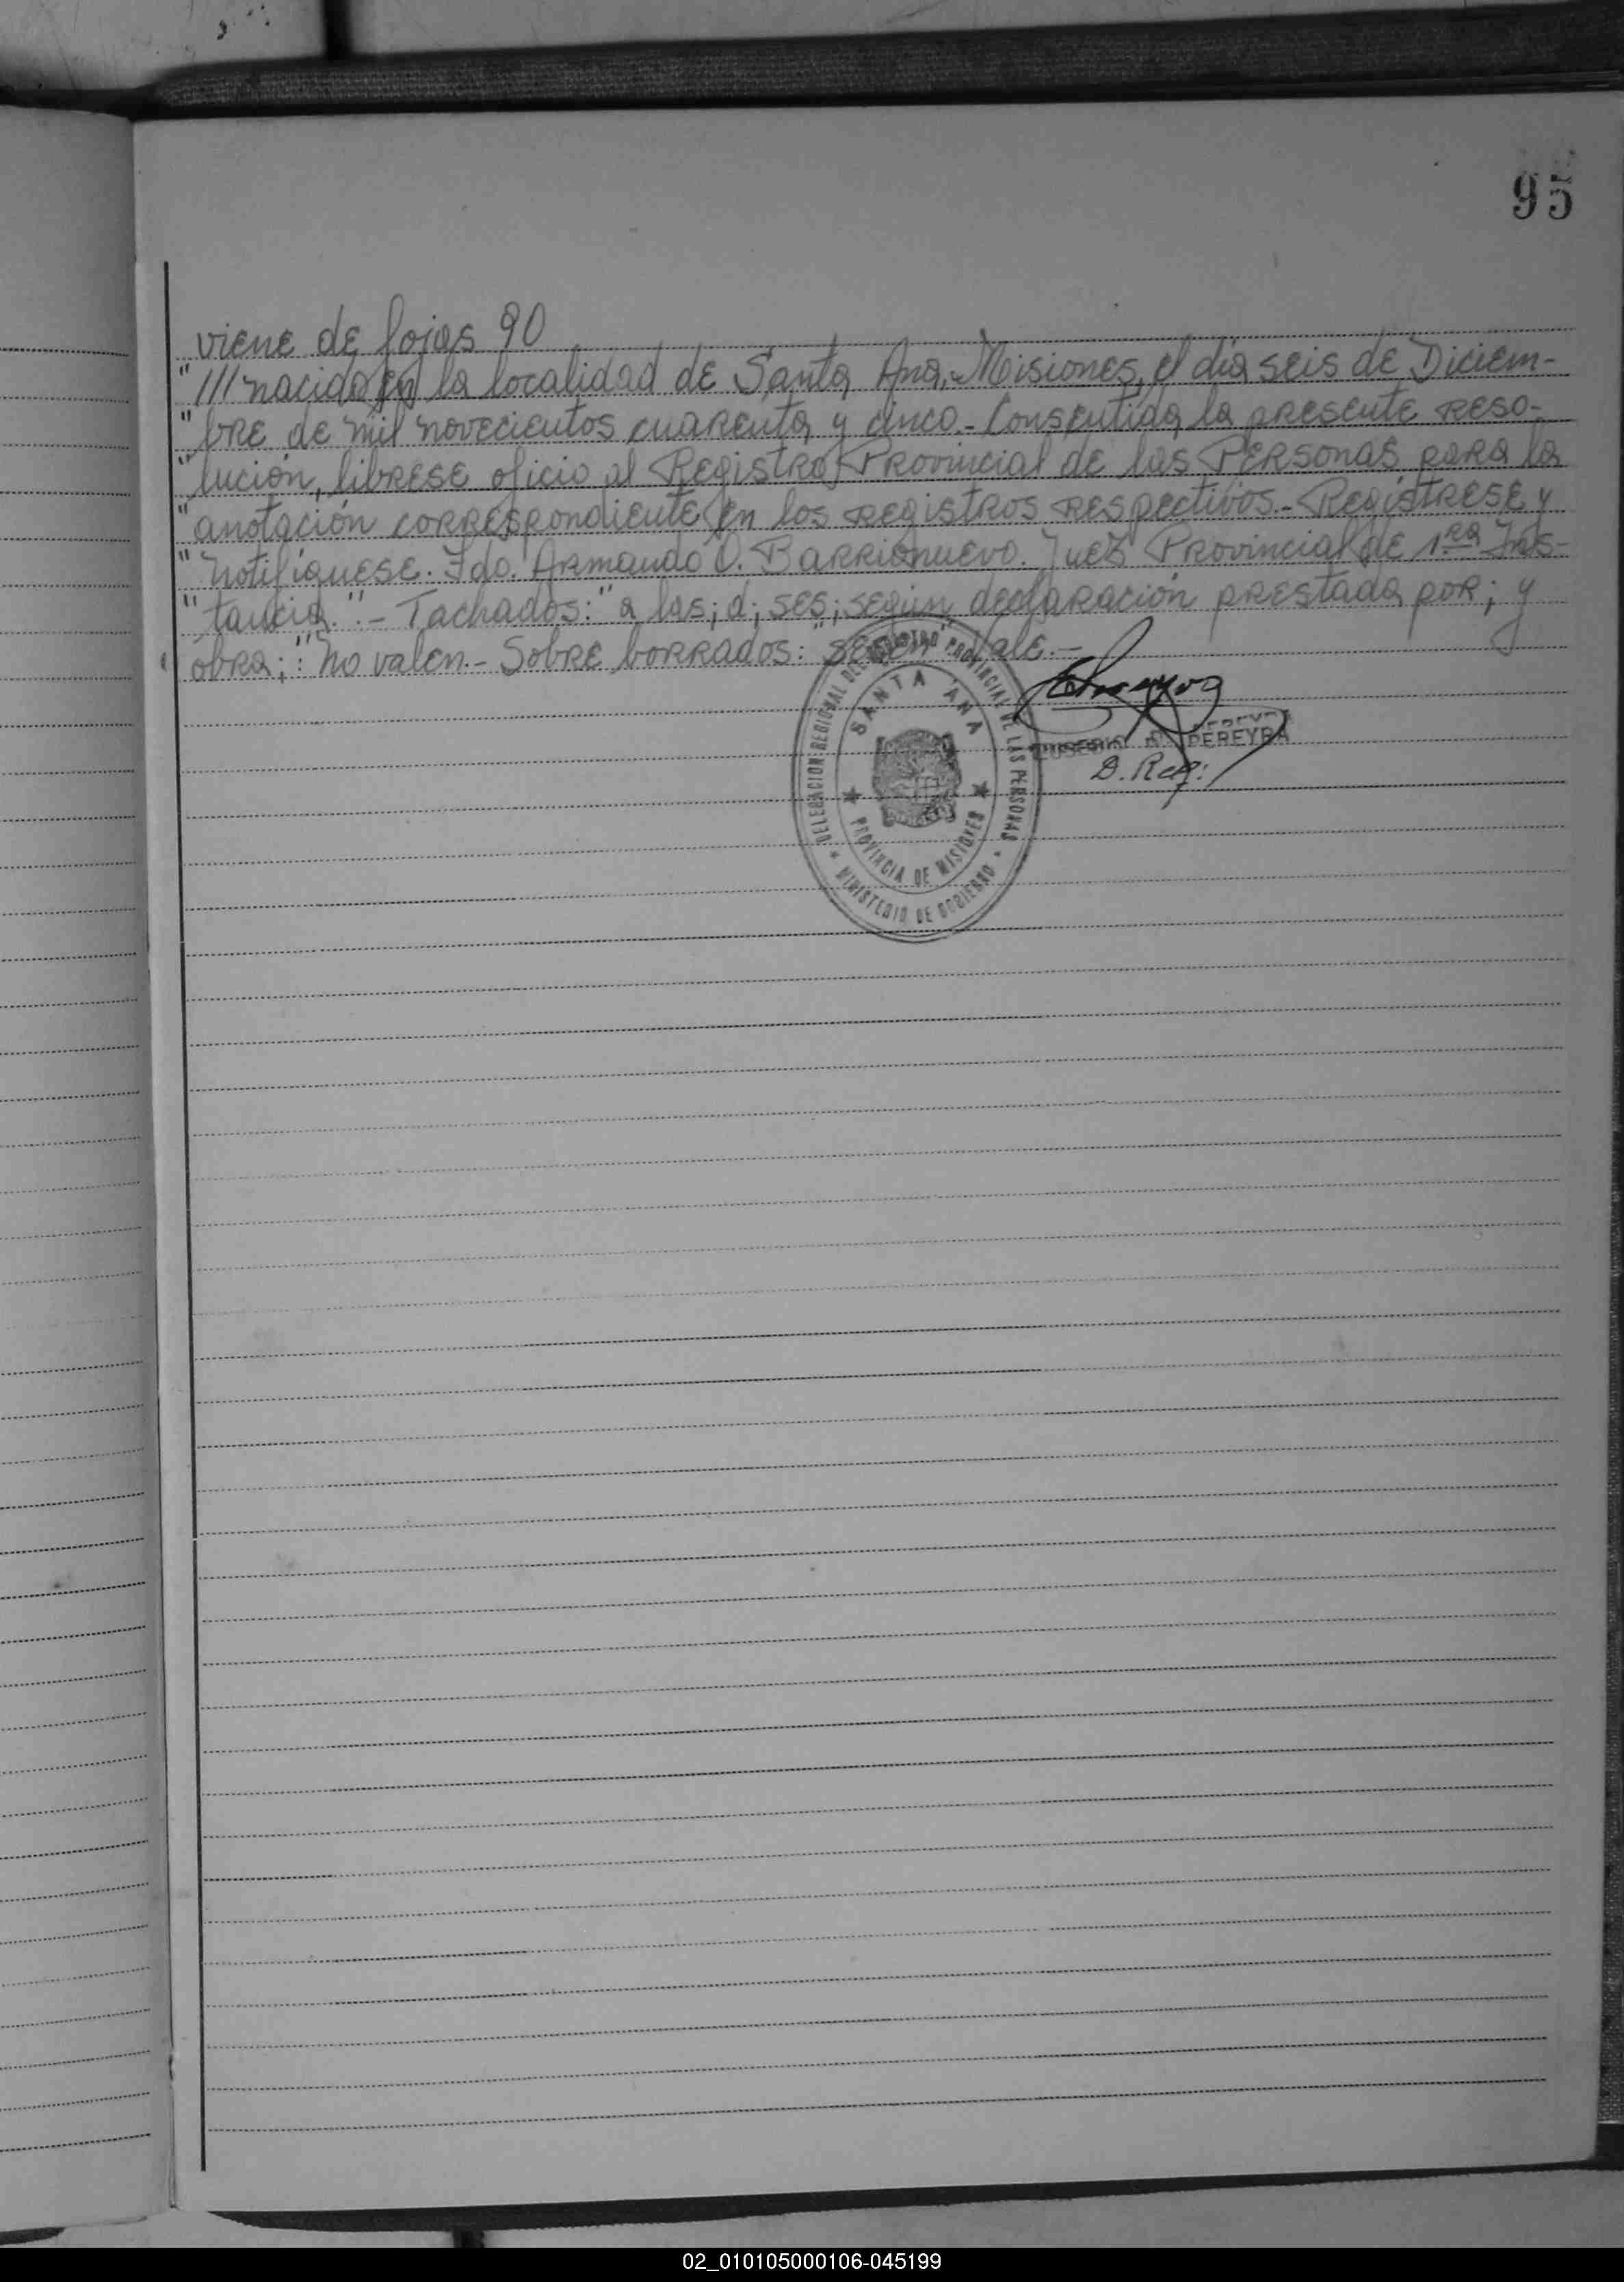 95
viene de fojas 90
"/// nacido en la localidad de Santa Ana, Misiones, el día seis de Diciem-
"bre de mil novecientos cuarenta y cinco.- Consentida la presente reso-
"lución, librese oficio al Registro Provincial de las Personas para la
"anotación correspondiente en los registros respectivos.- Regístrese y
"Notifíquese. Fdo. Armando O. Barrionuevo. Juez Provincial de 1ra Ins-
"tancia.".- Tachados: "a las; d; ses; según declaración prestada por; y
obra;": No valen.- Sobre borrados: Vale.-
DELEGACION REGIONAL DEL REGISTRO PROVINCIAL DE LAS PERSONAS
SANTA ANA
PROVINCIA DE MISIONES
MINISTERIO DE GOBIERNO
EUSEBIO PEREYRA
D. Reg.
02_010105000106-045199